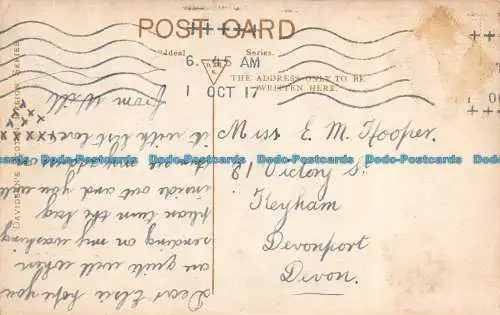 POST CARD
Series.
6. 45 AM
1 OCT 17
THE ADDRESS ONLY TO BE
WRITTEN HERE.
Miss E. M. Hooper.
81 Victory St
Keyham
Devonport
Devon.
Dear Elsie hope you
are quite well when
sending on my washing
please turn the bag
inside out and you will
it with best love
from Will
Dodo-Postcards Dodo-Postcards Dodo-Postcards Dodo-Postcards Dodo-Postcards